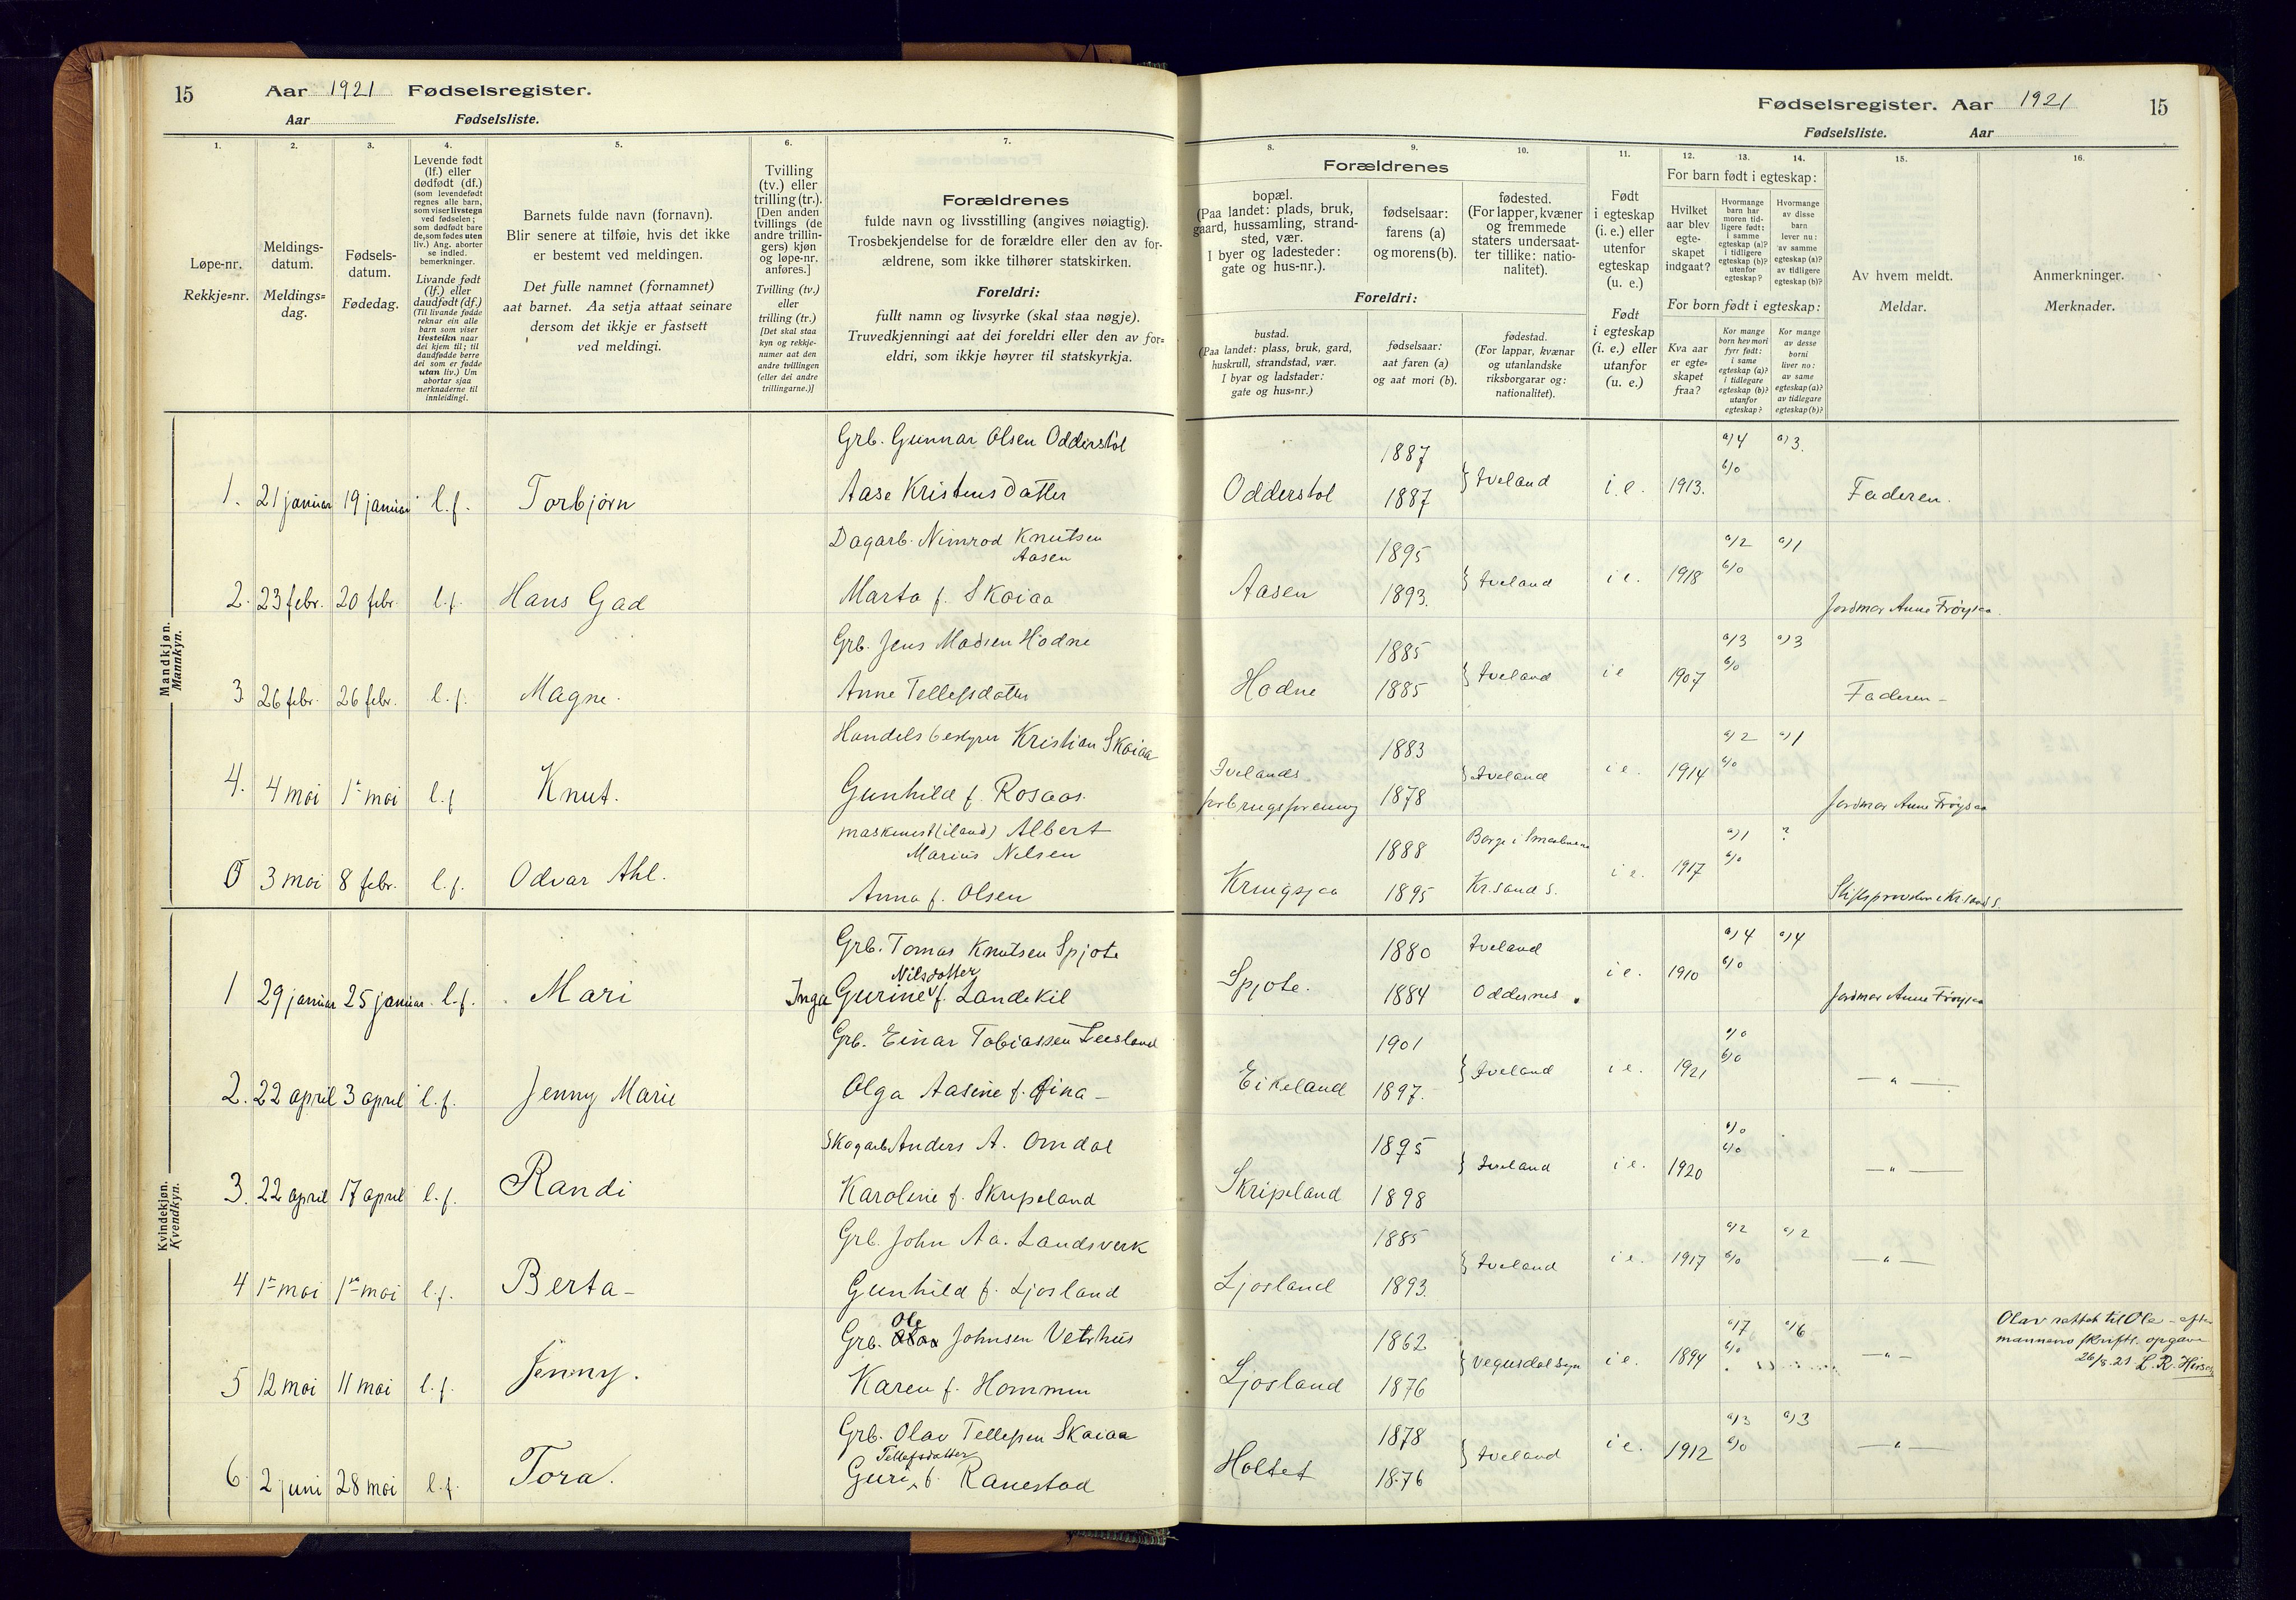 15 Aar 1921 Fødselsregister.
Aar Fødselsliste.
Fødselsregister. Aar 1921 15
Fødselsliste. Aar
1. 2. 3. 4. 5. 6. 7.
Løpe-nr.
Rekkje=nr.
Meldings-
datum.
Meldings=
dag.
Fødsels-
datum.
Fødedag.
Levende født
(lf.) eller
dødfødt (df.)
(som levendefødt
regnes alle barn,
som viser livstegn
ved fødselen;
som dødfødt bare
de, som fødes uten
liv.) Ang. aborter
se indled.
bemerkninger.
Livande født
(lf.) eller
daudfødt (df.)
(Til livande fødde
reknar ein alle
barn som viser
livsteikn naar
dei kjem til; til
daudfødde berre
dei som er fødde
utan liv.) Um
abortar sjaa
merknaderne til
innleidingi.
Barnets fulde navn (fornavn).
Blir senere at tilføie, hvis det ikke
er bestemt ved meldingen.
Det fulle namnet (fornamnet)
aat barnet. Aa setja attaat seinare
dersom det ikkje er fastsett
ved meldingi.
Tvilling
(tv.) eller
trilling (tr.).
[Den anden
tvillings (de
andre trillin-
gers) kjøn
og løpe-nr.
anføres.]
Tvilling (tv.)
eller
trilling (tr.)
[Det skal staa
kyn og rekkje-
numer aat den
andre tvillingen
(eller dei andre
trillingarne.)]
Forældrenes
fulde navn og livsstilling (angives nøiagtig).
Trosbekjendelse for de forældre eller den av for-
ældrene, som ikke tilhører statskirken.
Foreldri:
fullt namn og livsyrke (skal staa nøgje).
Truvedkjenningi aat dei foreldri eller den av for=
eldri, som ikkje høyrer til statskyrkja.
8. 9. 10. 11. 12. 13. 14. 15. 16.
Forældrenes
bopæl.
(Paa landet: plads, bruk,
gaard, hussamling, strand-
sted, vær.
I byer og ladesteder:
gate og hus-nr.).
fødselsaar:
farens (a)
og morens (b).
fødested.
(For lapper, kvæner
og fremmede
staters undersaat-
ter tillike: natio-
nalitet).
Foreldri:
bustad.
(Paa landet: plass, bruk, gard,
huskrull, strandstad, vær.
I byar og ladstader:
gate og hus=nr.)
fødselsaar:
aat faren (a)
og aat mori (b).
fødestad.
(For lappar, kvænar
og utanlandske
riksborgarar og:
nationalitet).
Født
i egteskap
(i. e.) eller
utenfor
egteskap
(u. e.)
Født
i egteskap
(i. e.) eller
utanfor
(u. e.)
For barn født i egteskap:
Hvilket
aar blev
egte-
skapet
indgaat?
Hvormange
barn har
moren tid-
ligere født:
i samme
egteskap (a)?
i tidligere
egteskap (b)?
utenfor
egteskap?
Hvormange
av disse
barn
lever nu:
av samme
egteskap (a)?
av tidligere
egteskap (b)?
For born født i egteskap:
Kva aar
er egte-
skapet
fraa?
Kor mange
born hev mori
fyrr født:
i same
egteskap (a)?
i tidlegare
egteskap (b)?
utanfor
egteskap?
Kor mange
av desse
borni
liver no:
av same
egteskap (a)?
av tidlegare
egteskap (b)?
Av hvem meldt.
Meldar.
Anmerkninger.
Merknader.
Mandkjøn.
Mannkyn.
Grb. Gunnar Olsen Odderstøl 1887 a)4 a)3.
1. 21 januar 19 januar l.f. Torbjørn Aase Kristensdatter Odderstøl 1887 } Iveland i.e. 1913. b)0 Faderen.
Dagarb. Nimrod Knutsen
Aasen 1895 a)2 a)1
2. 23 febr. 20 febr. l.f. Hans Gad Marta f. Skaiaa Aasen 1893. } Iveland i e. 1918 b)0 Jordmor Anne Frøysaa.
Grb. Jens Madsen Hodne 1885 a)3 a)3
3 26 febr. 26 febr. l.f. Magne. Anne Tellefsdatter Hodne 1885 } Iveland i e 1907 b)0 Faderen -
Handelsbestyrer Kristian Skaiaa 1883 a)2 a)1
4. 4 mai 1ste mai l.f Knut. Gunhild f. Rosaas. Ivelands
forbrugsforening 1878 } Iveland i e. 1914 b)0 Jordmor Anne Frøysaa
maskinist (iland) Albert
Marius Nilsen 1888 Borge i Smaalenene a)1 ?
5 3 mai 8 febr. l.f. Odvar Ahl. Anna f. Olsen Kringsjaa 1895 Kr.sand S. i e. 1917 b)0 Stiftsprovsten i Kr.sand S.
Kvindekjøn.
Kvendkyn.
Grb. Tomas Knutsen Spjote 1880 Iveland a)4 a)4
Nilsdatter
1 29 januar 25 januar l.f. Mari Inga Gurine f. Landekil Spjote. 1884 Oddernes. i e. 1910 b)0 Jordmor Anne Frøysaa
Grb. Einar Tobiassen 1901 a)0
2. 22 april 3 april l.f. Jenny Marie Olga Aasine f. Eikeland 1897. } Iveland i e. 1921 b)0 — " —
Skogarb. Anders A. Omdal 1895 a)0
3. 22 april 17 april l.f. Randi Karoline f. Skripeland Skripeland 1898 } Iveland i e. 1920 b)0 — " —
Grb. John Aa. Landsverk 1885 a)2 a)2
4 1ste mai 1ste mai l.f. Berta - Gunhild f. Ljosland Ljosland 1893. } Iveland i e. 1917 b)0 — " —
Ole
Grb. Olav Johnsen Vetrhus 1862 a)7 a)6 Olav rettet til Ole - efter
mannens skriftl. opgave
26/8.21 L. R. Hirsch
5 12 mai 11 mai l.f. Jenny. Karen f. Hommen Ljosland 1876 } Vegusdal sogn i e. 1894 b)0 — " —
Grb. Olav Tellefsen Skaiaa 1878 a)3 a)3
Tellefsdatter
6 2 juni 28 mai l.f. Tora. Guri f. Ranestad Holtet 1876 } Iveland i e. 1912 b)0 — " —